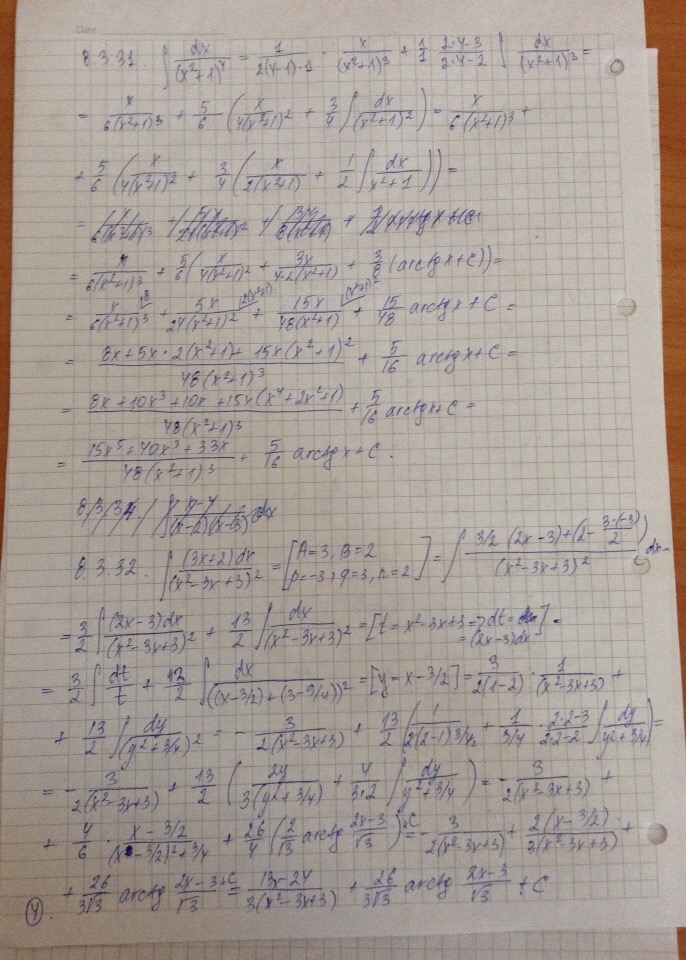 8.3.31. ∫ dx/(x²+1)⁴ = 1/(2(4-1)·1) · x/(x²+1)³ + 1/1 · (2·4-3)/(2·4-2) ∫ dx/(x²+1)³ =
= x/(6(x²+1)³) + 5/6 (x/(4(x²+1)²) + 3/4 ∫ dx/(x²+1)²) = x/(6(x²+1)³) +
+ 5/6 (x/(4(x²+1)²) + 3/4 (x/(2(x²+1)) + 1/2 ∫ dx/(x²+1))) =
= x/(6(x²+1)³) + 5/6 (x/(4(x²+1)²) + 3x/(4·2(x²+1)) + 3/8 (arctg x + C)) =
= x/(6(x²+1)³) + 5x/(24(x²+1)²) + 15x/(48(x²+1)) + 15/48 arctg x + C =
= (8x + 5x·2(x²+1) + 15x(x²+1)²)/(48(x²+1)³) + 5/16 arctg x + C =
= (8x + 10x³ + 10x + 15x(x⁴+2x²+1))/(48(x²+1)³) + 5/16 arctg x + C =
= (15x⁵ + 40x³ + 33x)/(48(x²+1)³) + 5/16 arctg x + C.
8.3.32. ∫ (3x+2)dx/(x²-3x+3)² = [A=3, B=2 p=-3, q=3, n=2] = ∫ (3/2 (2x-3) + (2 - 3·(-3)/2))/(x²-3x+3)² dx =
= 3/2 ∫ (2x-3)dx/(x²-3x+3)² + 13/2 ∫ dx/(x²-3x+3)² = [t = x²-3x+3 ⇒ dt = = (2x-3)dx] =
= 3/2 ∫ dt/t + 13/2 ∫ dx/((x-3/2)+(3-9/4))² = [y = x-3/2] = 3/(2(1-2)) · 1/(x²-3x+3) +
+ 13/2 ∫ dy/(y²+3/4)² = - 3/(2(x²-3x+3)) + 13/2 (1/(2(2-1)3/4) + 1/(3/4) · (2·2-3)/(2·2-2) ∫ dy/(y²+3/4)) =
= - 3/(2(x²-3x+3)) + 13/2 (2y/(3(y²+3/4)) + 4/(3·2) ∫ dy/(y²+3/4)) = - 3/(2(x²-3x+3)) +
+ 4/6 · (x-3/2)/((x-3/2)²+3/4) + 26/4 (2/√3 arctg (2x-3)/√3) + C = - 3/(2(x²-3x+3)) + 2(x-3/2)/(3(x²-3x+3)) +
+ 26/(3√3) arctg (2x-3)/√3 + C = (13x-24)/(3(x²-3x+3)) + 26/(3√3) arctg (2x-3)/√3 + C
4.